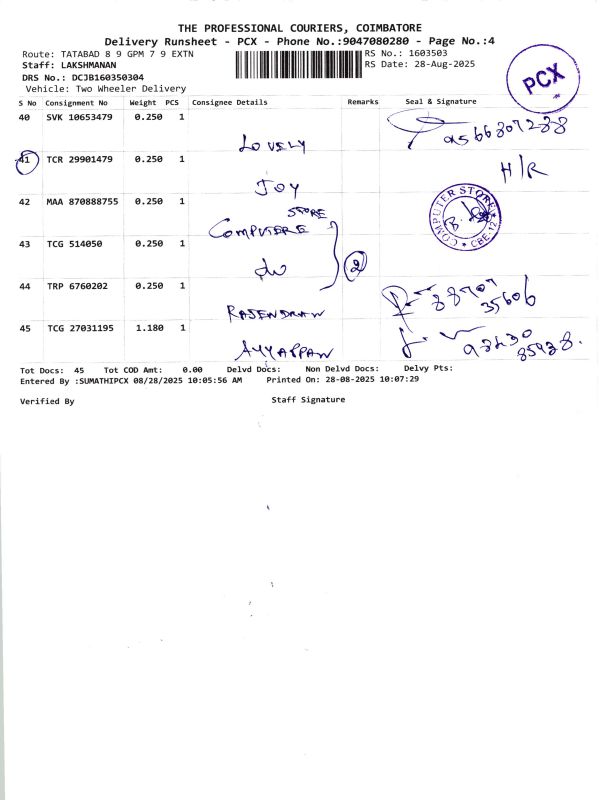 THE PROFESSIONAL COURIERS, COIMBATORE
Delivery Runsheet - PCX - Phone No.:9047080280 - Page No.:4
Route: TATABAD 8 9 GPM 7 9 EXTN
RS No.: 1603503
Staff: LAKSHMANAN
RS Date: 28-Aug-2025
DRS No.: DCJB160350304
Vehicle: Two Wheeler Delivery
PCX
S No Consignment No Weight PCS Consignee Details Remarks Seal & Signature
40 SVK 10653479 0.250 1
LOVELY
41 TCR 29901479 0.250 1
JOY
H/R
42 MAA 870888755 0.250 1
COMPUTERE STORE
COMPUTER STORE CBE-12
43 TCG 514050 0.250 1
do
2
44 TRP 6760202 0.250 1
RAJENDRAN
88707
35606
45 TCG 27031195 1.180 1
AYYAPPAN
Tot Docs: 45 Tot COD Amt: 0.00 Delvd Docs: Non Delvd Docs: Delvy Pts:
Entered By :SUMATHIPCX 08/28/2025 10:05:56 AM Printed On: 28-08-2025 10:07:29
Verified By Staff Signature